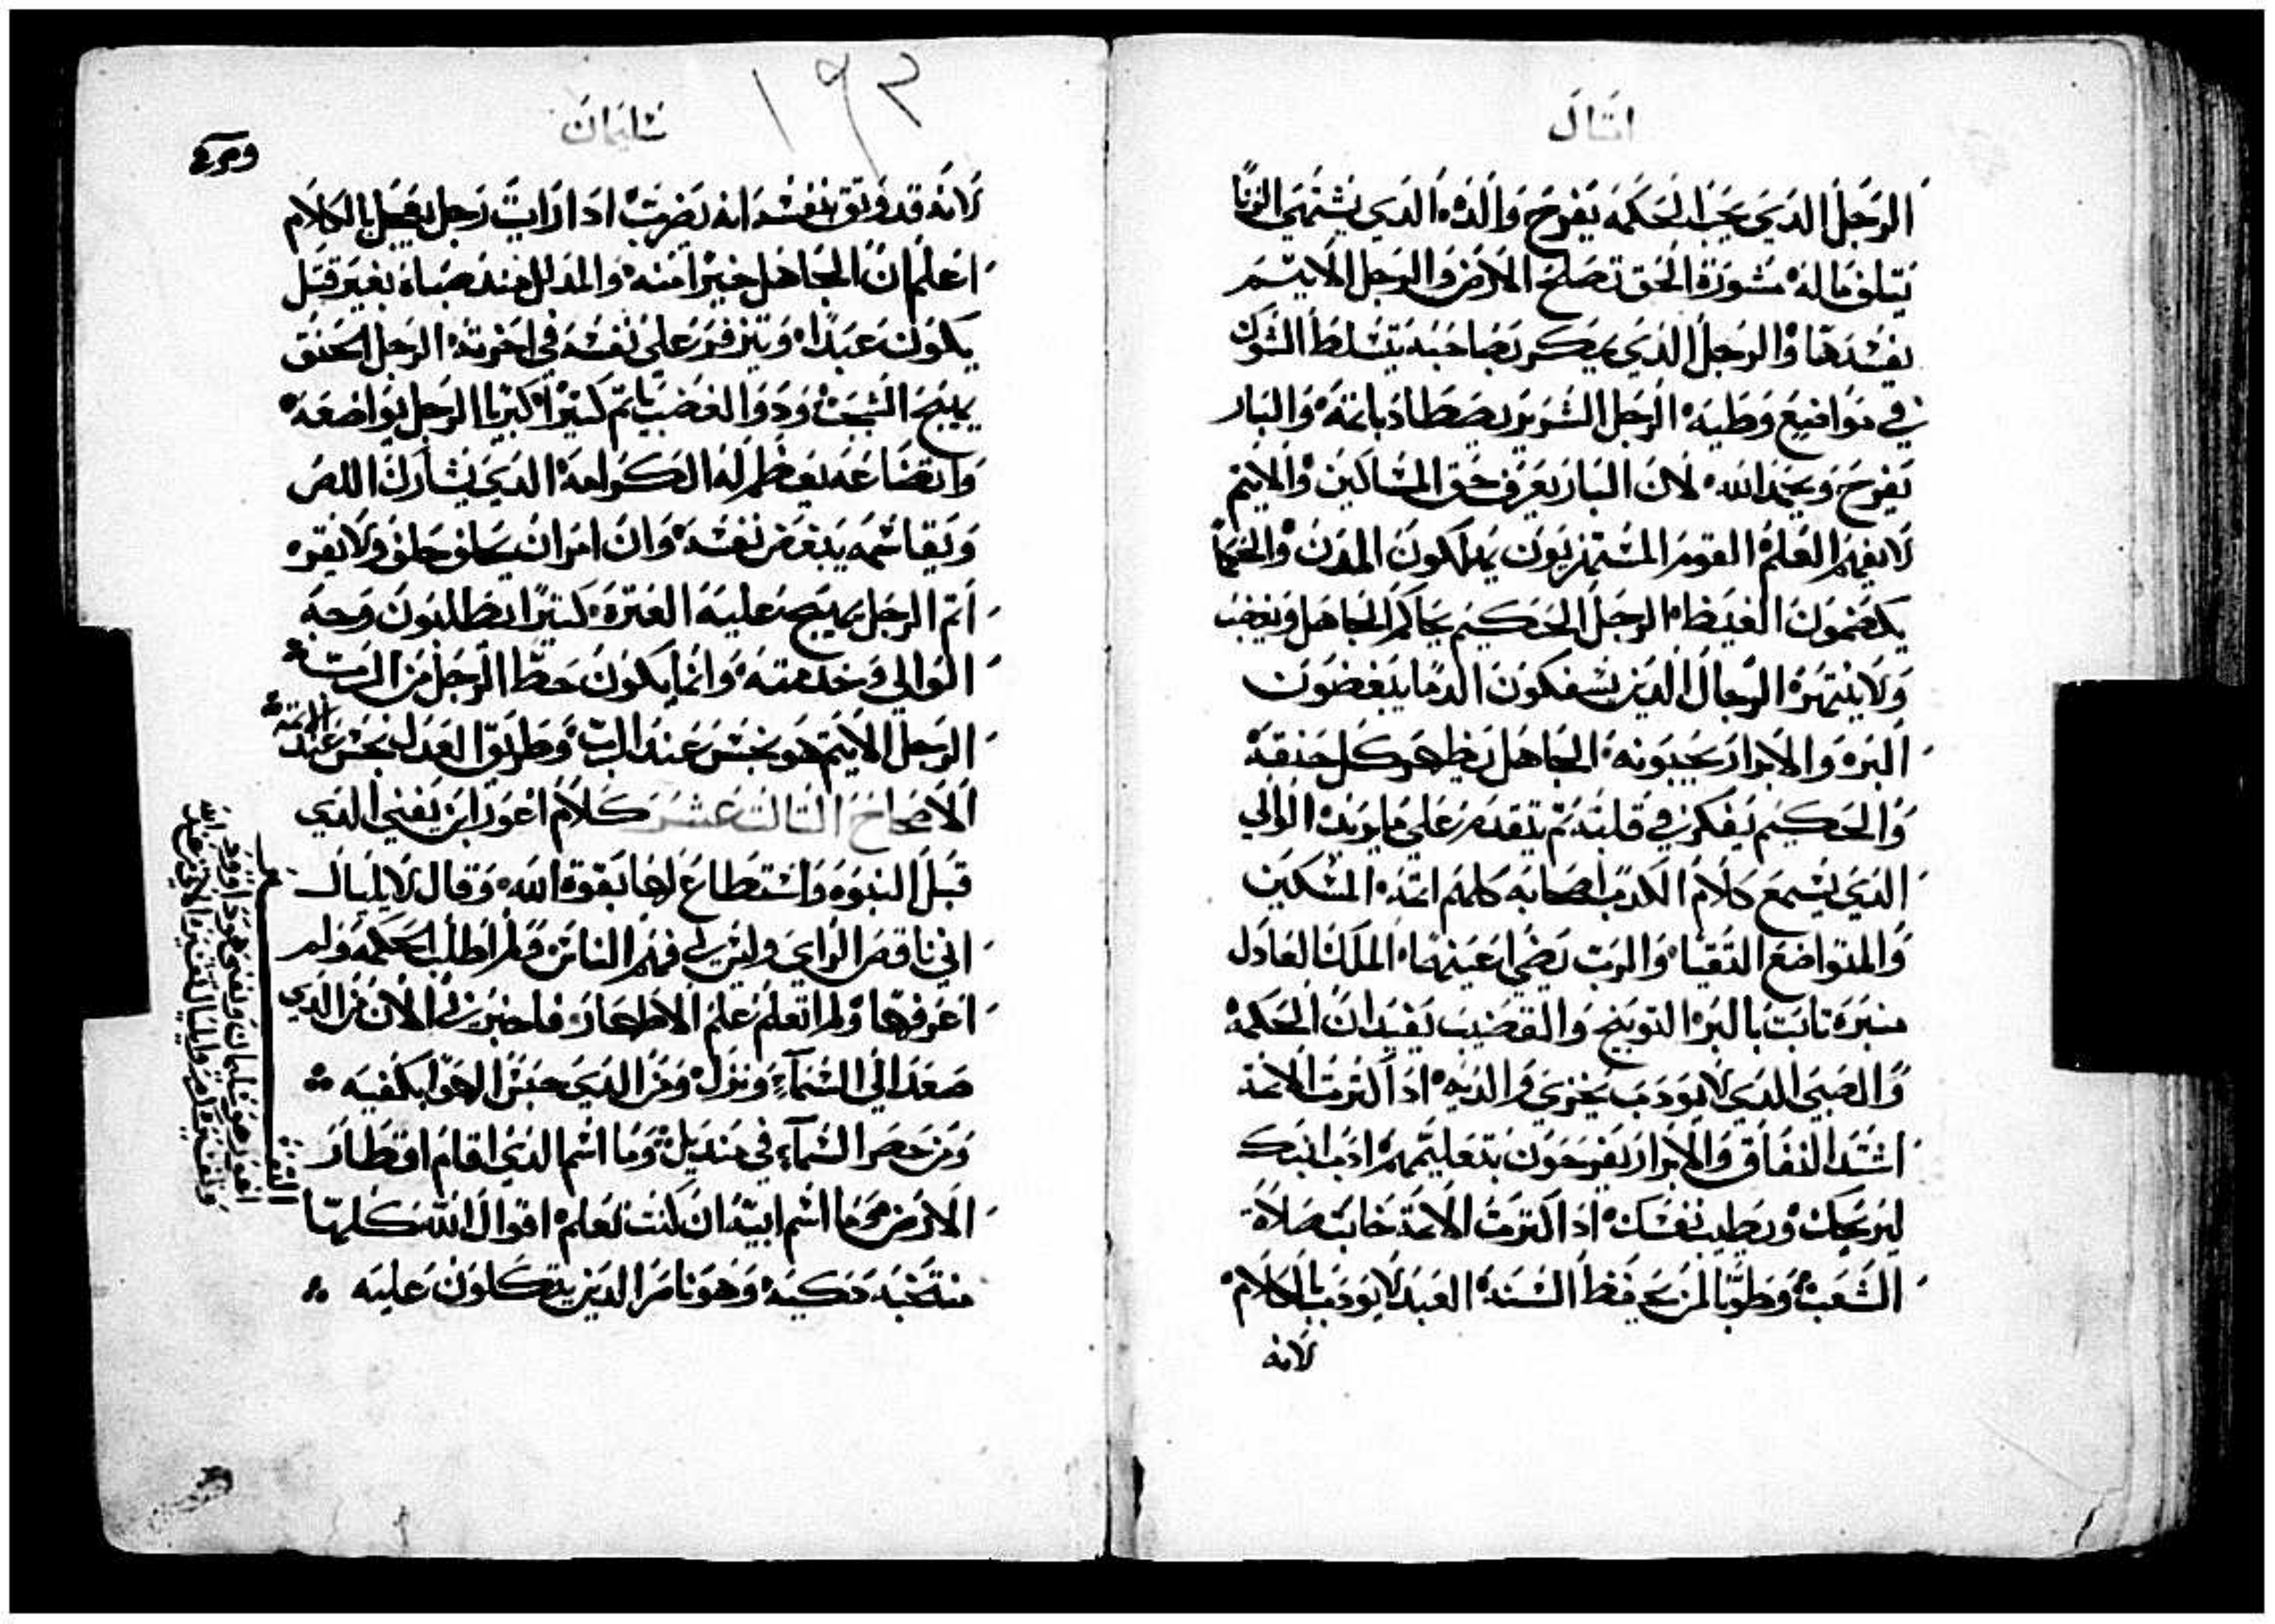 امتال
الرَجل الدي يحب الحكمه يفرح والده الدي يشتهي الزنا
يتلف ماله مشورة الحق تصلح الارض والرجل الاتيم
يفسدها والرجل الدي يمكر بصاحبه يتسلط الشوك
في مواضيع وطيه الرجل الشرير يصطاد باتمه والبار
يفرح ويحمد الله لان البار يعرف حق المساكين والاتيم
لا يفهم العلم القوم المستهزيون يهلكون المدن والحكما
يكضمون الغيظ الرجل الحكيم يحاكم الجاهل ويغضب
ولا ينتهره الرجال الدين يسفكون الدما يبغضون
البره والابرار يحبونه الجاهل يظهر كل حنقة
والحكيم يفكر في قلبه تم يتقدم على ما يريد الوالي
الدي يسمع كلام الكدب اصحابه كلهم اتمه المسكين
والمتواضع التقيا والرب يضي اعينهما الملك العادل
منبره تابت بالبر التوبيخ والقضيب يفيدان الحكمة
والصبي الدي لا يودب يخزي والديه ادا الترت الاتمة
اشتد النفاق والابرار يفرحون بتعليمهم ادب ابنك
ليريحك ويطيب نفسك ادا اكترت الاتمة خابت صلاة
الشعب وطوبا لمن يحفظ السنة العبد لا يودب بالكلام
لانه
١٩٢
سليمان
لانه قد وتق بنفسه انه يضرب ادا رايت رجل يعجل بالكلام
اعلم ان الجاهل خيرا منه والمدلل مند صباه بغير قتل
يكون عبدا ويتزفر على نفسه في اخرته الرجل الحنق
يهيج الشجب ودو الغضب ياتم كتيرا كبريا الرجل تواضعه
واتضاعه يعظم له الكرامة الدي يشارك اللص
ويقاسمه يبغض نفسه وان امر ان يحلف حلف ولا يقره
اتم الرجل يهيج عليه العتره كتيرا يطلبون وجه
الوالي وخدمته وانما يكون حظ الرجل من الرب
الرجل الاتيم هو نجس عند الرب وطريق العدل نجس عند الاتمة
الاصحاح التالت عشر كلام اغور ابن يفني الدي
قبل النبوه واستطاع لها بقوة الله وقال لايليال
اني ناقص الراي وليس لي فهم الناس ولم اطلب الحكمه ولم
اعرفها ولم اتعلم علم الاطهار فاخبرني الان من الدي
صعد الي السماء ونزل ومن الدي حبس الهوا بكفيه
ومن حصر السماء في منديل وما اسم الدي اقام اقطار
الارض وما اسم ابيه ان كنت تعلم اقوال الله كلها
منتخبه دكيه وهو نامر الدين يتكلون عليه